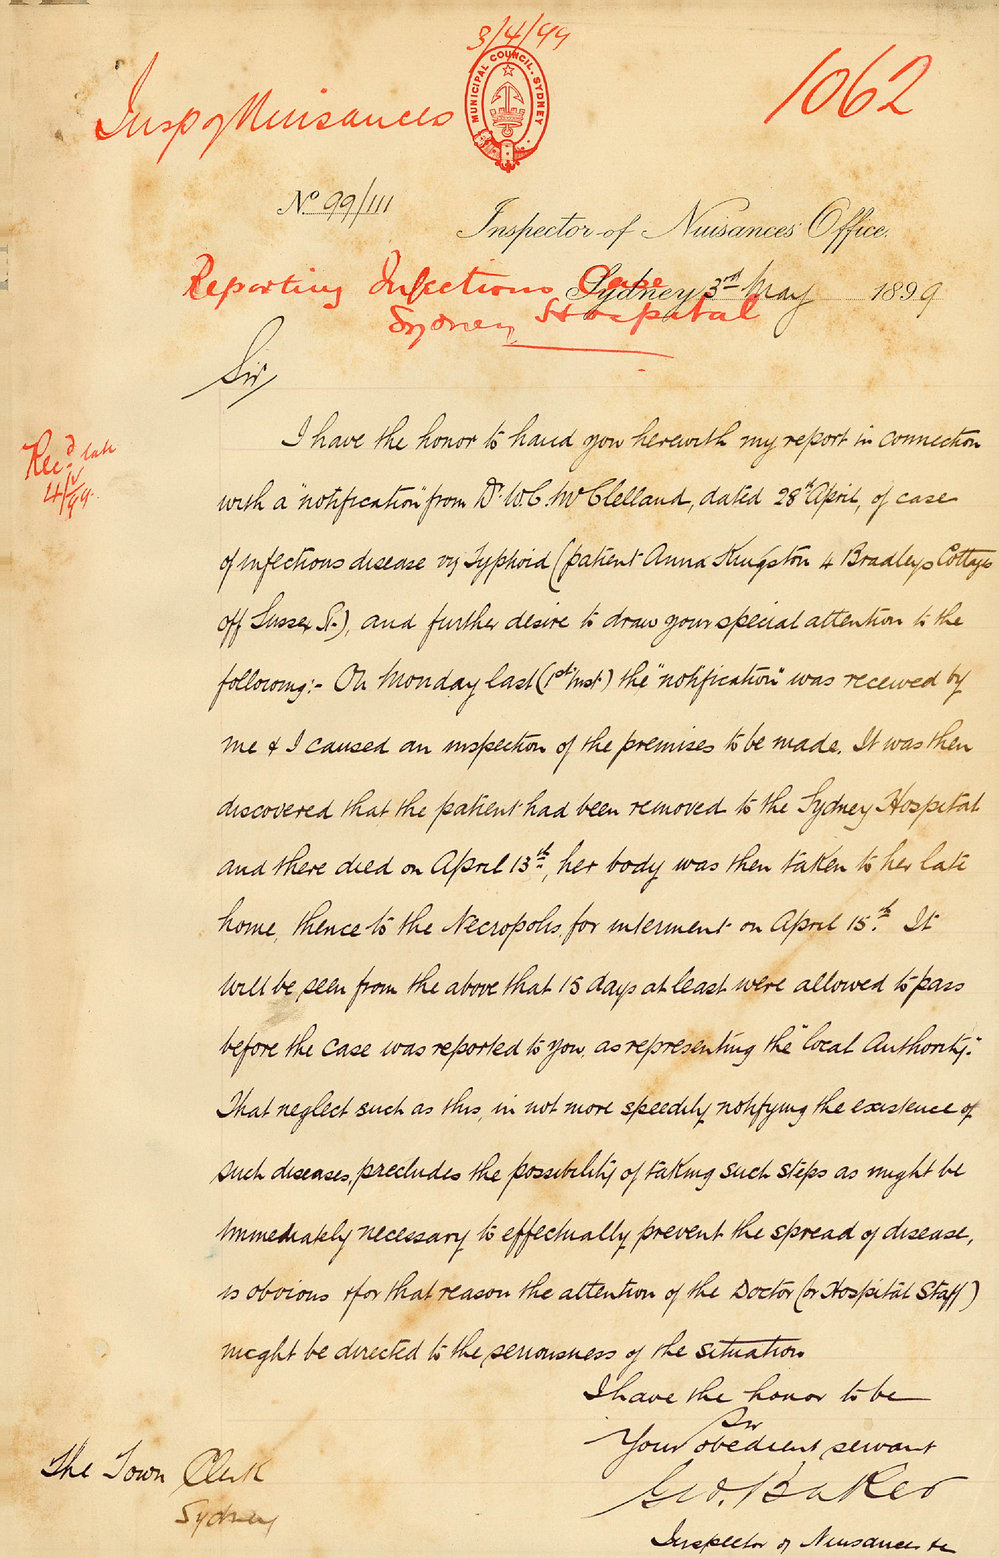 3/4/99
MUNICIPAL COUNCIL. SYDNEY
1062
Insp of Nuisances
No 99/111
Inspector of Nuisances Office,
Reporting Infectious Case
Sydney 3rd May 1899
Sydney Hospital
Sir,
I have the honor to hand you herewith my report in connection
Recd late
4/5/99.
with a "notification" from Dr. W.C. McClelland, dated 28th April, of case
of infectious disease viz Typhoid (patient Anna Kingston 4 Bradleys Cottages
off Sussex St.), and further desire to draw your special attention to the
following:- On Monday last (1st Inst) the "notification" was received by
me & I caused an inspection of the premises to be made. It was then
discovered that the patient had been removed to the Sydney Hospital
and there died on April 13th, her body was then taken to her late
home, thence to the Necropolis, for interment on April 15th. It
will be seen from the above that 15 days at least were allowed to pass
before the case was reported to you, as representing the "local Authority."
That neglect such as this, in not more speedily notifying the existence of
such diseases, precludes the possibility of taking such steps as might be
immediately necessary to effectually prevent the spread of disease,
is obvious & for that reason the attention of the Doctor (or Hospital Staff)
might be directed to the seriousness of the situation
I have the honor to be
Sir
Your obedient servant
Geo. Baker
Inspector of Nuisances &c
The Town Clerk
Sydney